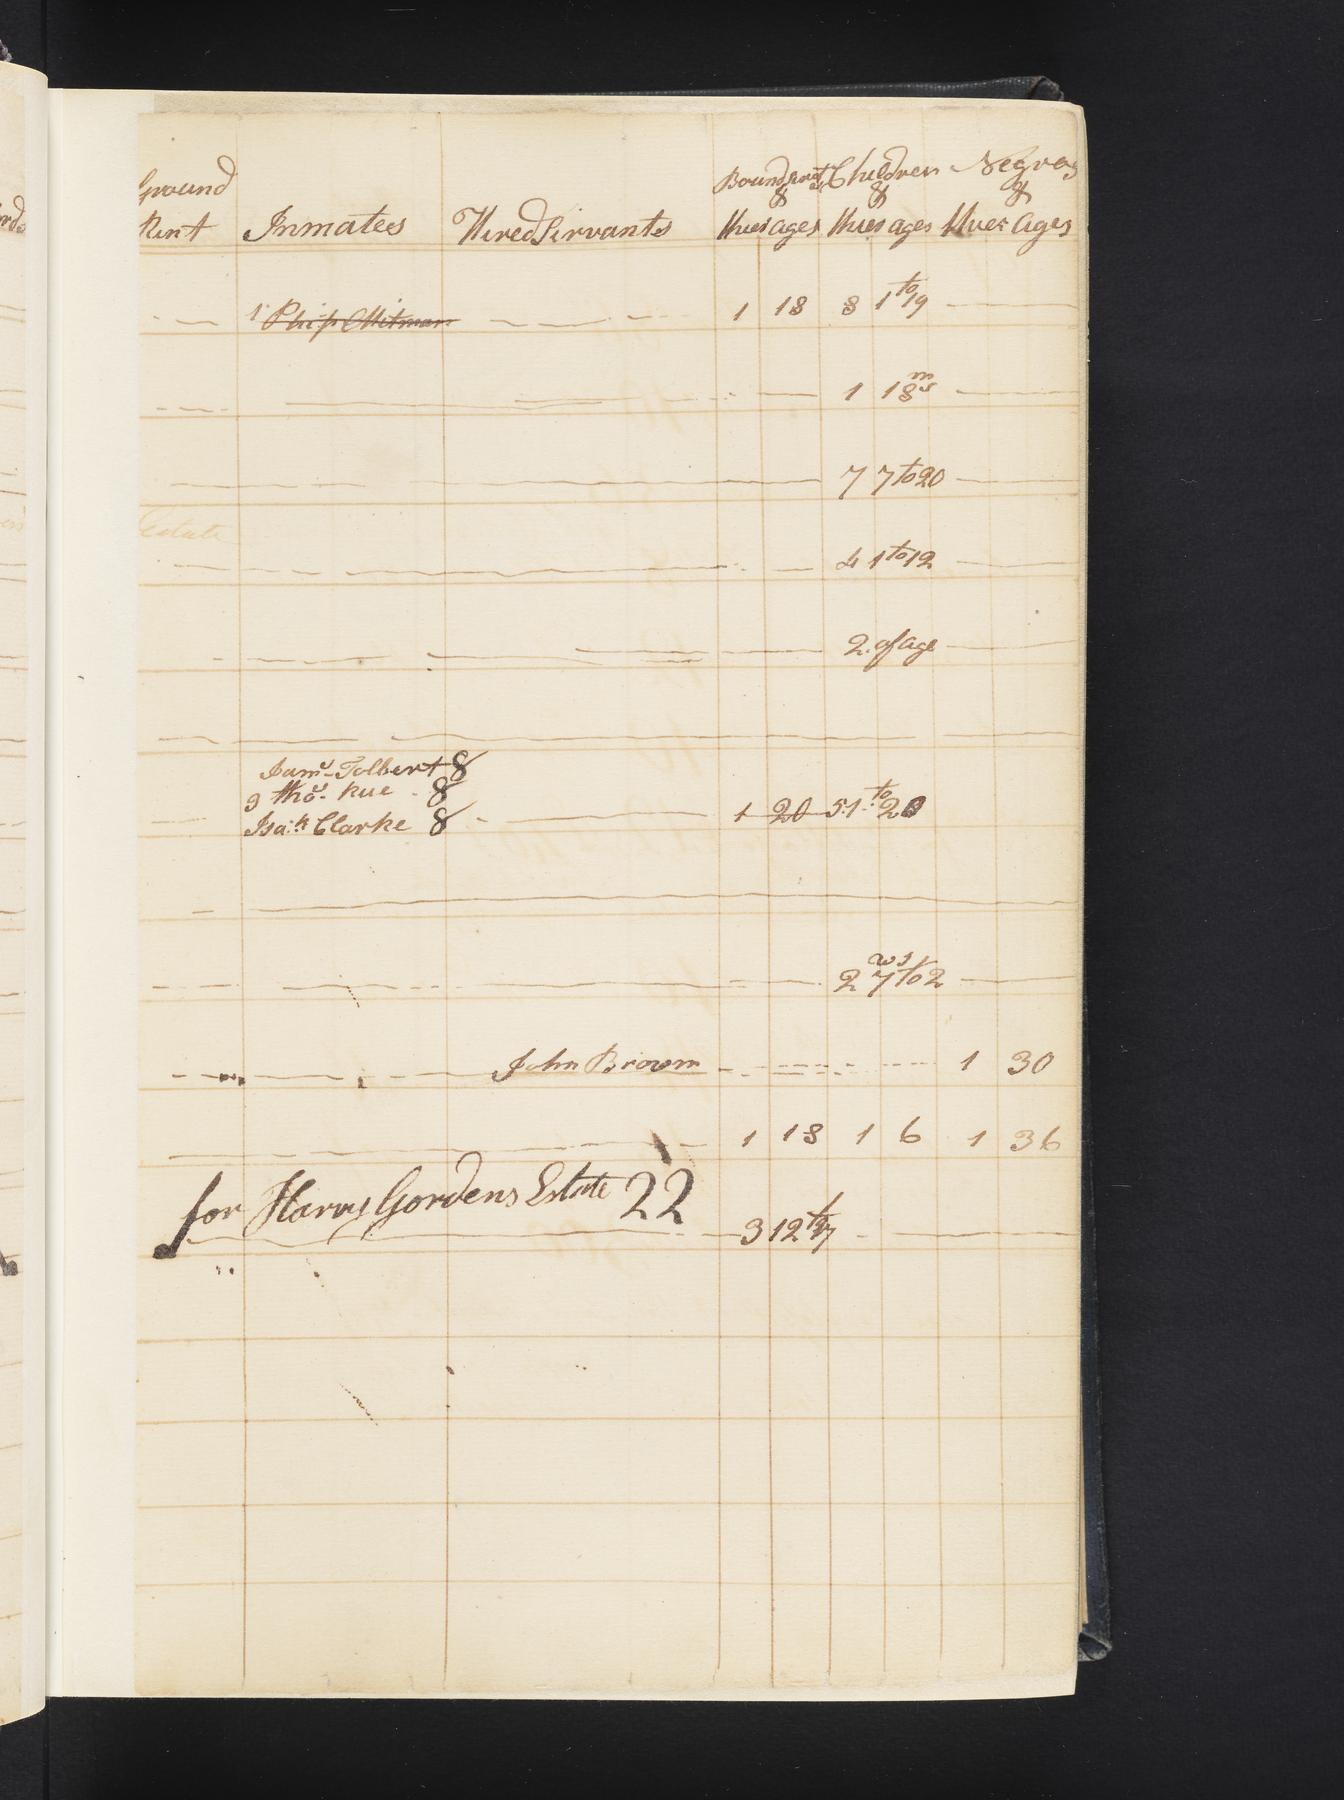 Ground Bound servts Children Negroes
Rent Inmates Hired Servants & & &
their ages their ages their ages
1 Phip 1 18 8 1 to 19
1 18 ms
7 7 to 20
Estate
4 1 to 12
2 of age
Samu Tolbert 8
3 Thos Rue 8
Isaah Clarke 8 1 20 5 1 to 20
ws
2 7 to 2
John Brown 1 30
1 18 1 6 1 36
for Harry Gordens Estate 22
3 12 to 17